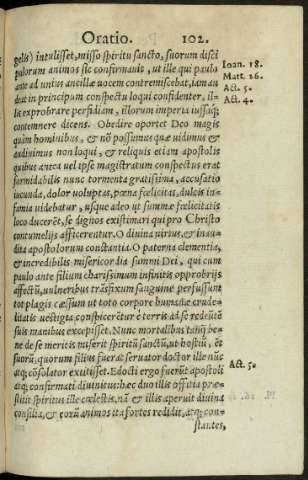 Oratio. 102.
gelis) intulisset, misso spiritu sancto, suorum disci
pulorum animos sic confirmauit, ut ille qui paulo
ante ad unius ancillæ uocem contremiscebat, iam au
deat in principum conspectu loqui confidenter, il-
lis exprobrare perfidiam, illorum imperia iussaq́;
contemnere dicens. Obedire oportet Deo magis
quàm hominibus, & nõ possumus quæ uidimus &
audiuimus non loqui, & reliquis etiam apostolis
quibus antea uel ipse magistratum conspectus erat
formidabilis nunc tormenta gratissima, accusatio
iucunda, dolor uoluptas, pœna fœlicitas, dulcis in-
famia uidebatur, usque adeo ut summæ fœlicitatis
loco ducerẽt, se dignos existimari qui pro Christo
contumelijs afficerentur. O diuina uirtus, & inau-
dita apostolorum constantia. O paterna clementia,
& incredibilis misericordia summi Dei, qui cum
paulo ante filium charissimum infinitis opprobrijs
affectũ, uulneribus trãsfixum sanguine perfussum
tot plagis cæssum ut toto corpore humanæ crude-
litatis uestigia conspicerẽtur è terris ad se redeũte
suis manibus excepisset. Nunc mortalibus tanq̃ be-
ne de se meritis miserit spiritũ sanctũ, ut hostiũ, et
suorũ, quorum filius fuerat seruator doctor ille nũc
atq; cõsolator extitisset. Edocti ergo fuerũt apostoli
atq; confirmati diuinitus: hec duo illis officia præ-
stitit spiritus ille cælestis. nã & illis aperuit diuina
consilia, & eorũ animos ita fortes reddidit, atq; con-
stantes,
Ioan. 18.
Matt. 26.
Act. 5.
Act. 4.
Act. 5.